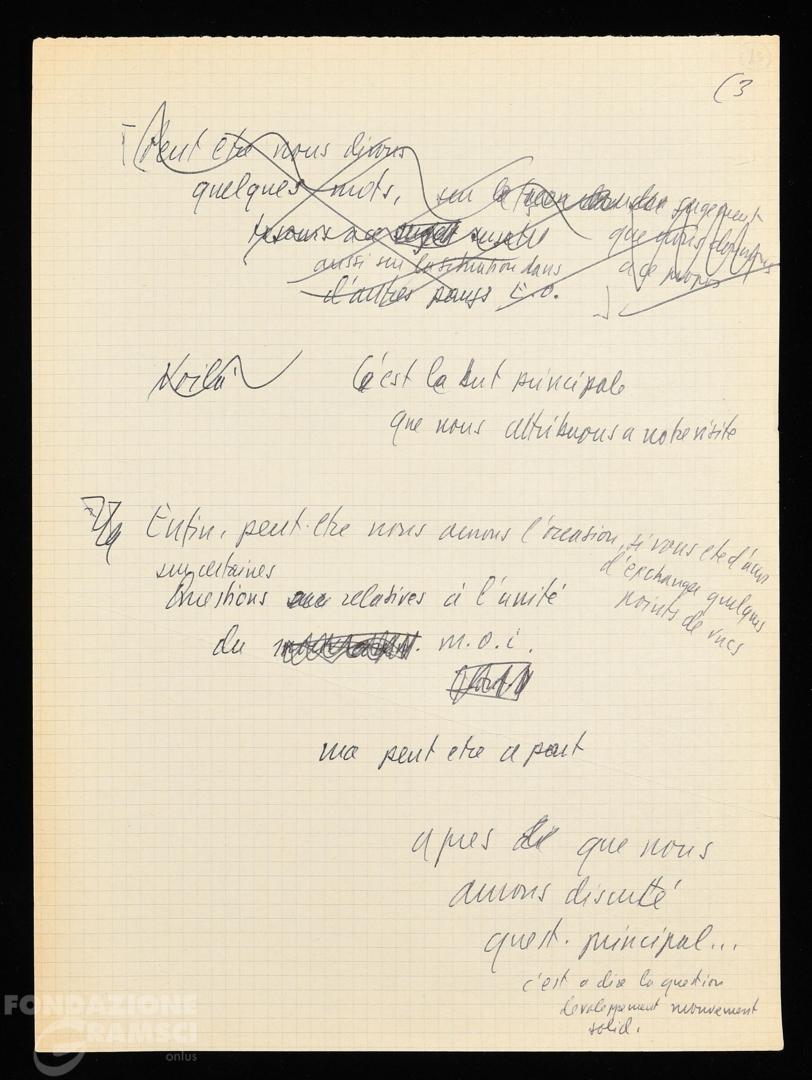 (3
Peut etre nous dirons
quelques mots, sur la façon
jugement
que nous donnons
a ce propos
aussi sur la situation dans
d'autres pays E.O.
Voilà
C'est la but principale
que nous attribuons a notre visite
Enfin, peut-etre nous aurons l'occasion, si vous ete d'acc
d'exchanger quelques
points de vues
sur certaines
questions relatives à l'unité
du m.o.i.
ma peut etre a part
apres que nous
aurons discuté
quest. principal...
c'est a dire la question
developpement mouvement
solid.
FONDAZIONE
GRAMSCI
onlus